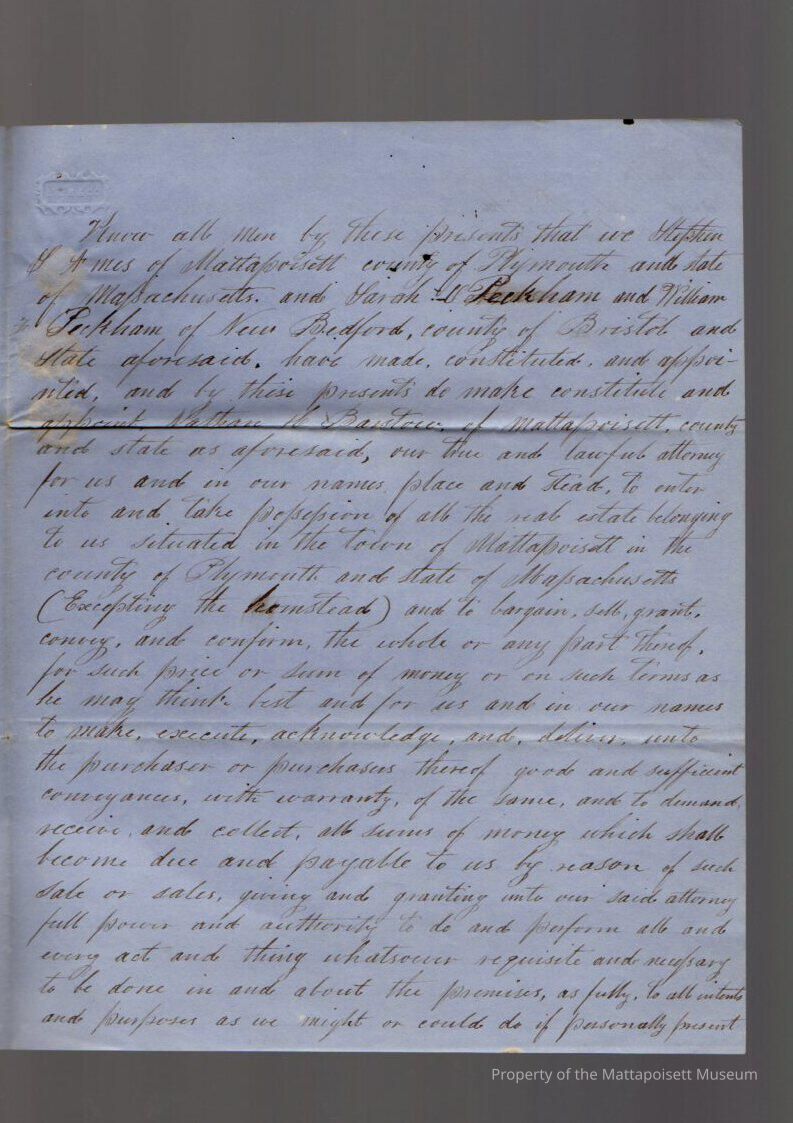 Know all men by these presents that we Stephen
Ames of Mattapoisett county of Plymouth and state
of Massachusetts. and Sarah Peckham and William
Peckham of New Bedford, county of Bristol and
state aforesaid. have made, constituted, and appoi-
nted, and by these presents do make constitute and
appoint Nathan H Barstow. of Mattapoisett, county
and state as aforesaid, our true and lawful attorney
for us and in our names, place and stead, to enter
into and take possession of all the real estate belonging
to us situated in the town of Mattapoisett in the
county of Plymouth and state of Massachusetts
(Excepting the homstead) and to bargain, sell, grant,
convey, and confirm, the whole or any part thereof,
for such price or sum of money or on such terms as
he may think best and for us and in our names
to make, execute, acknowledge, and, deliver, unto
the purchaser or purchasers thereof good and sufficient
conveyances, with warranty, of the same, and to demand,
receive, and collect, all sums of money which shall
become due and payable to us by reason of such
sale or sales, giving and granting unto our said attorney
full power and authority to do and perform all and
every act and thing whatsoever requisite and necessary
to be done in and about the premises, as fully, to all intents
and purposes as we might or could do if personally present
Property of the Mattapoisett Museum